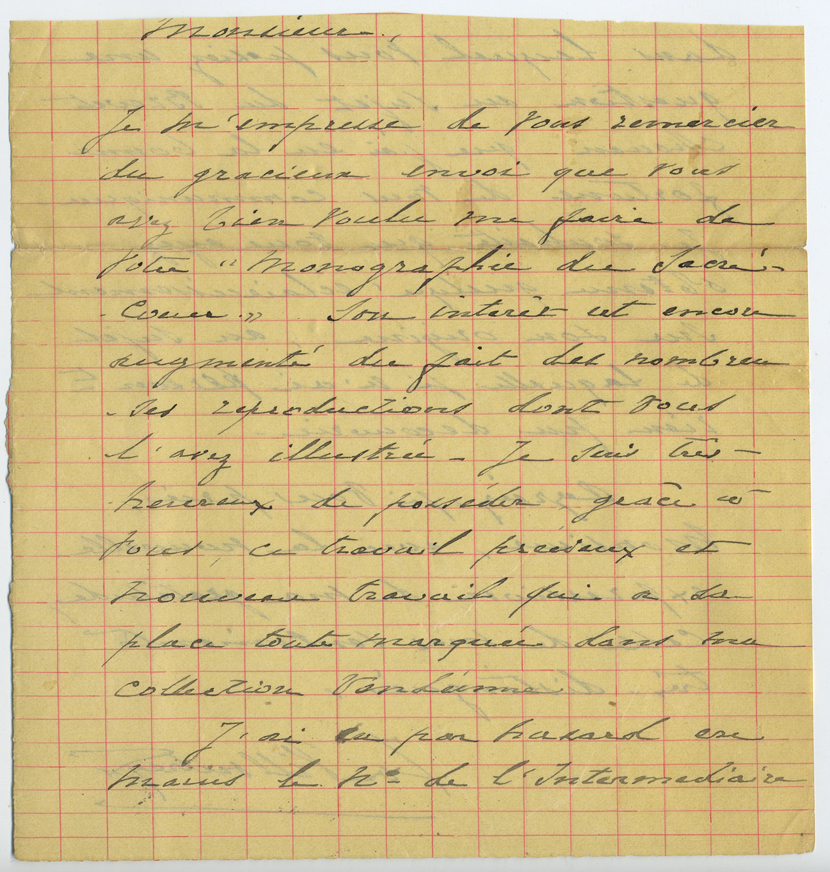 Monsieur,
Je m'empresse de vous remercier
du gracieux envoi que vous
avez bien voulu me faire de
votre "Monographie du Sacré-
-Coeur". Son intérêt est encore
augmenté du fait des nombreu
-ses reproductions dont vous
l'avez illustrée - Je suis très-
heureux de posséder, grâce à
vous, ce travail précieux et
nouveau travail qui a sa
place toute marquée dans ma
collection Vendéenne
J'ai eu par hasard en
mains le No de l'Intermediaire